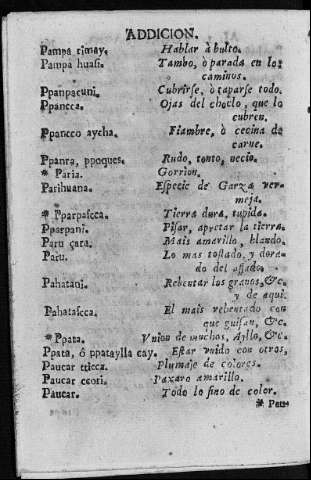 ADDICION.
Pampa rimay. Hablar à bulto.
Pampa huasi. Tambo, ò parada en los
caminos.
Ppanpacuni. Cubrirse, ò taparse todo.
Ppancca. Ojas del choclo, que lo
cubren.
Ppancco aycha. Fiambre, ò cecina de
carne.
Ppanra, ppoques. Rudo, tonto, necio.
* Paria. Gorrion.
Parihuana. Especie de Garza ver-
meja.
* Pparpascca. Tierra dura, tupida.
Pparpani. Pisar, apretar la tierra.
Paru çara. Mais amarillo, blando.
Paru. Lo mas tostado, y dora-
do del assado.
Pahatani. Rebentar los granos, &c.
y de aqui.
Pahatascca. El mais rebentado con
que guisan, &c.
* Ppata. Vnion de muchos, Ayllo, &c.
Ppata, ô ppataylla cay. Estar vnido con otros,
Paucar tticca. Plumaje de colores.
Paucar ccori. Paxaro amarillo.
Paucar. Todo lo fino de color.
* Pau-